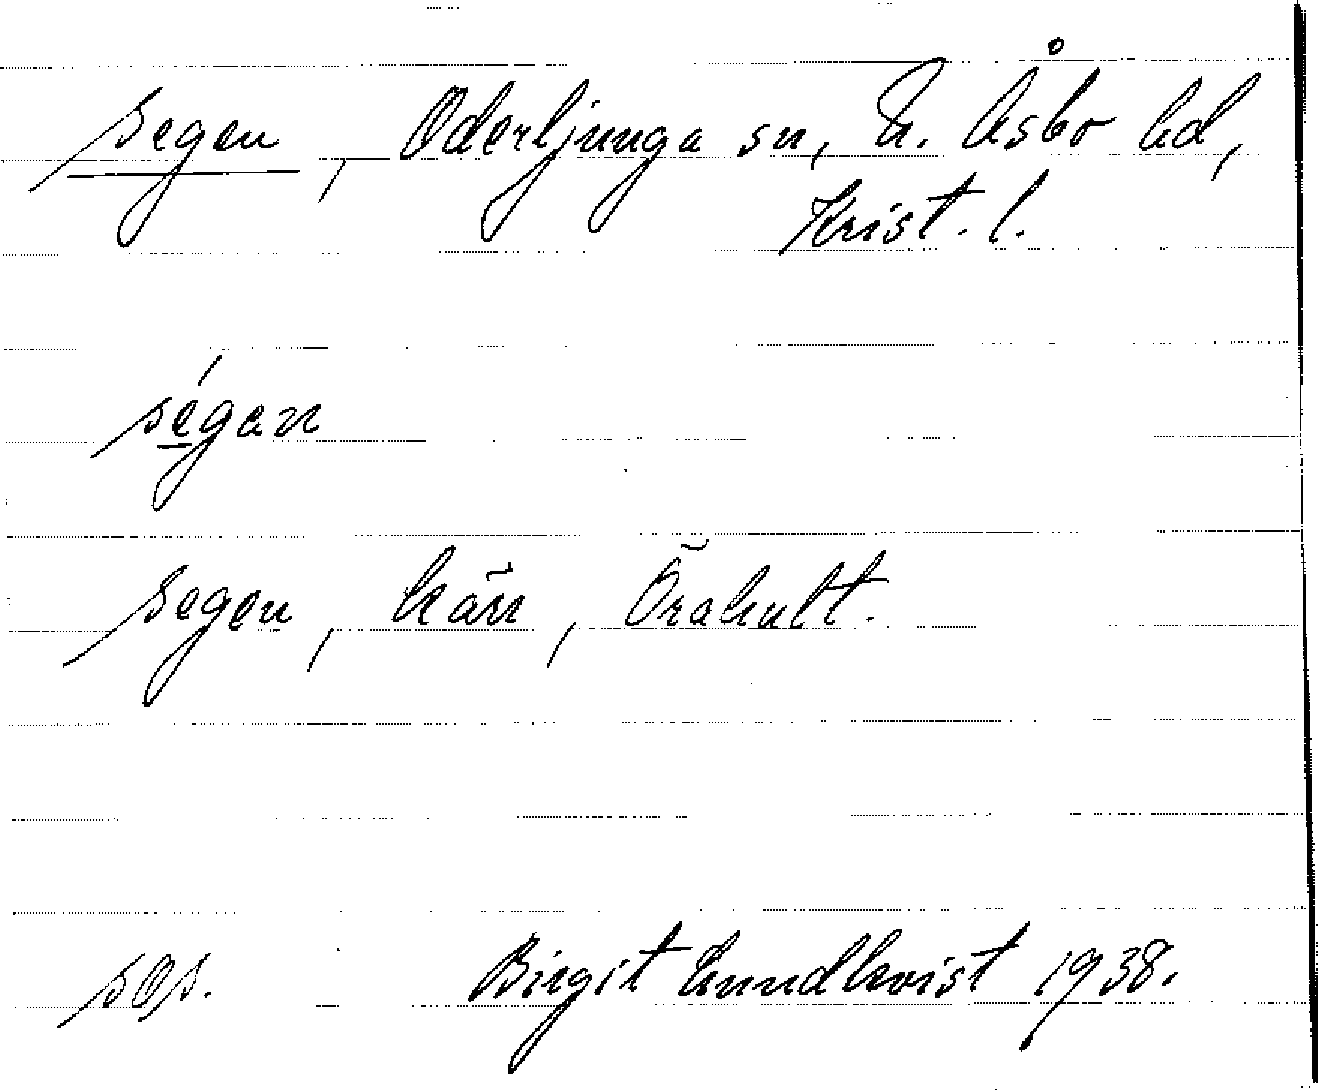 segen, Oderljunga sn, N. Åsbo hd,
Krist. l.
segan
segen, kärr, Örahult.
Birgit Lundkvist 1938.